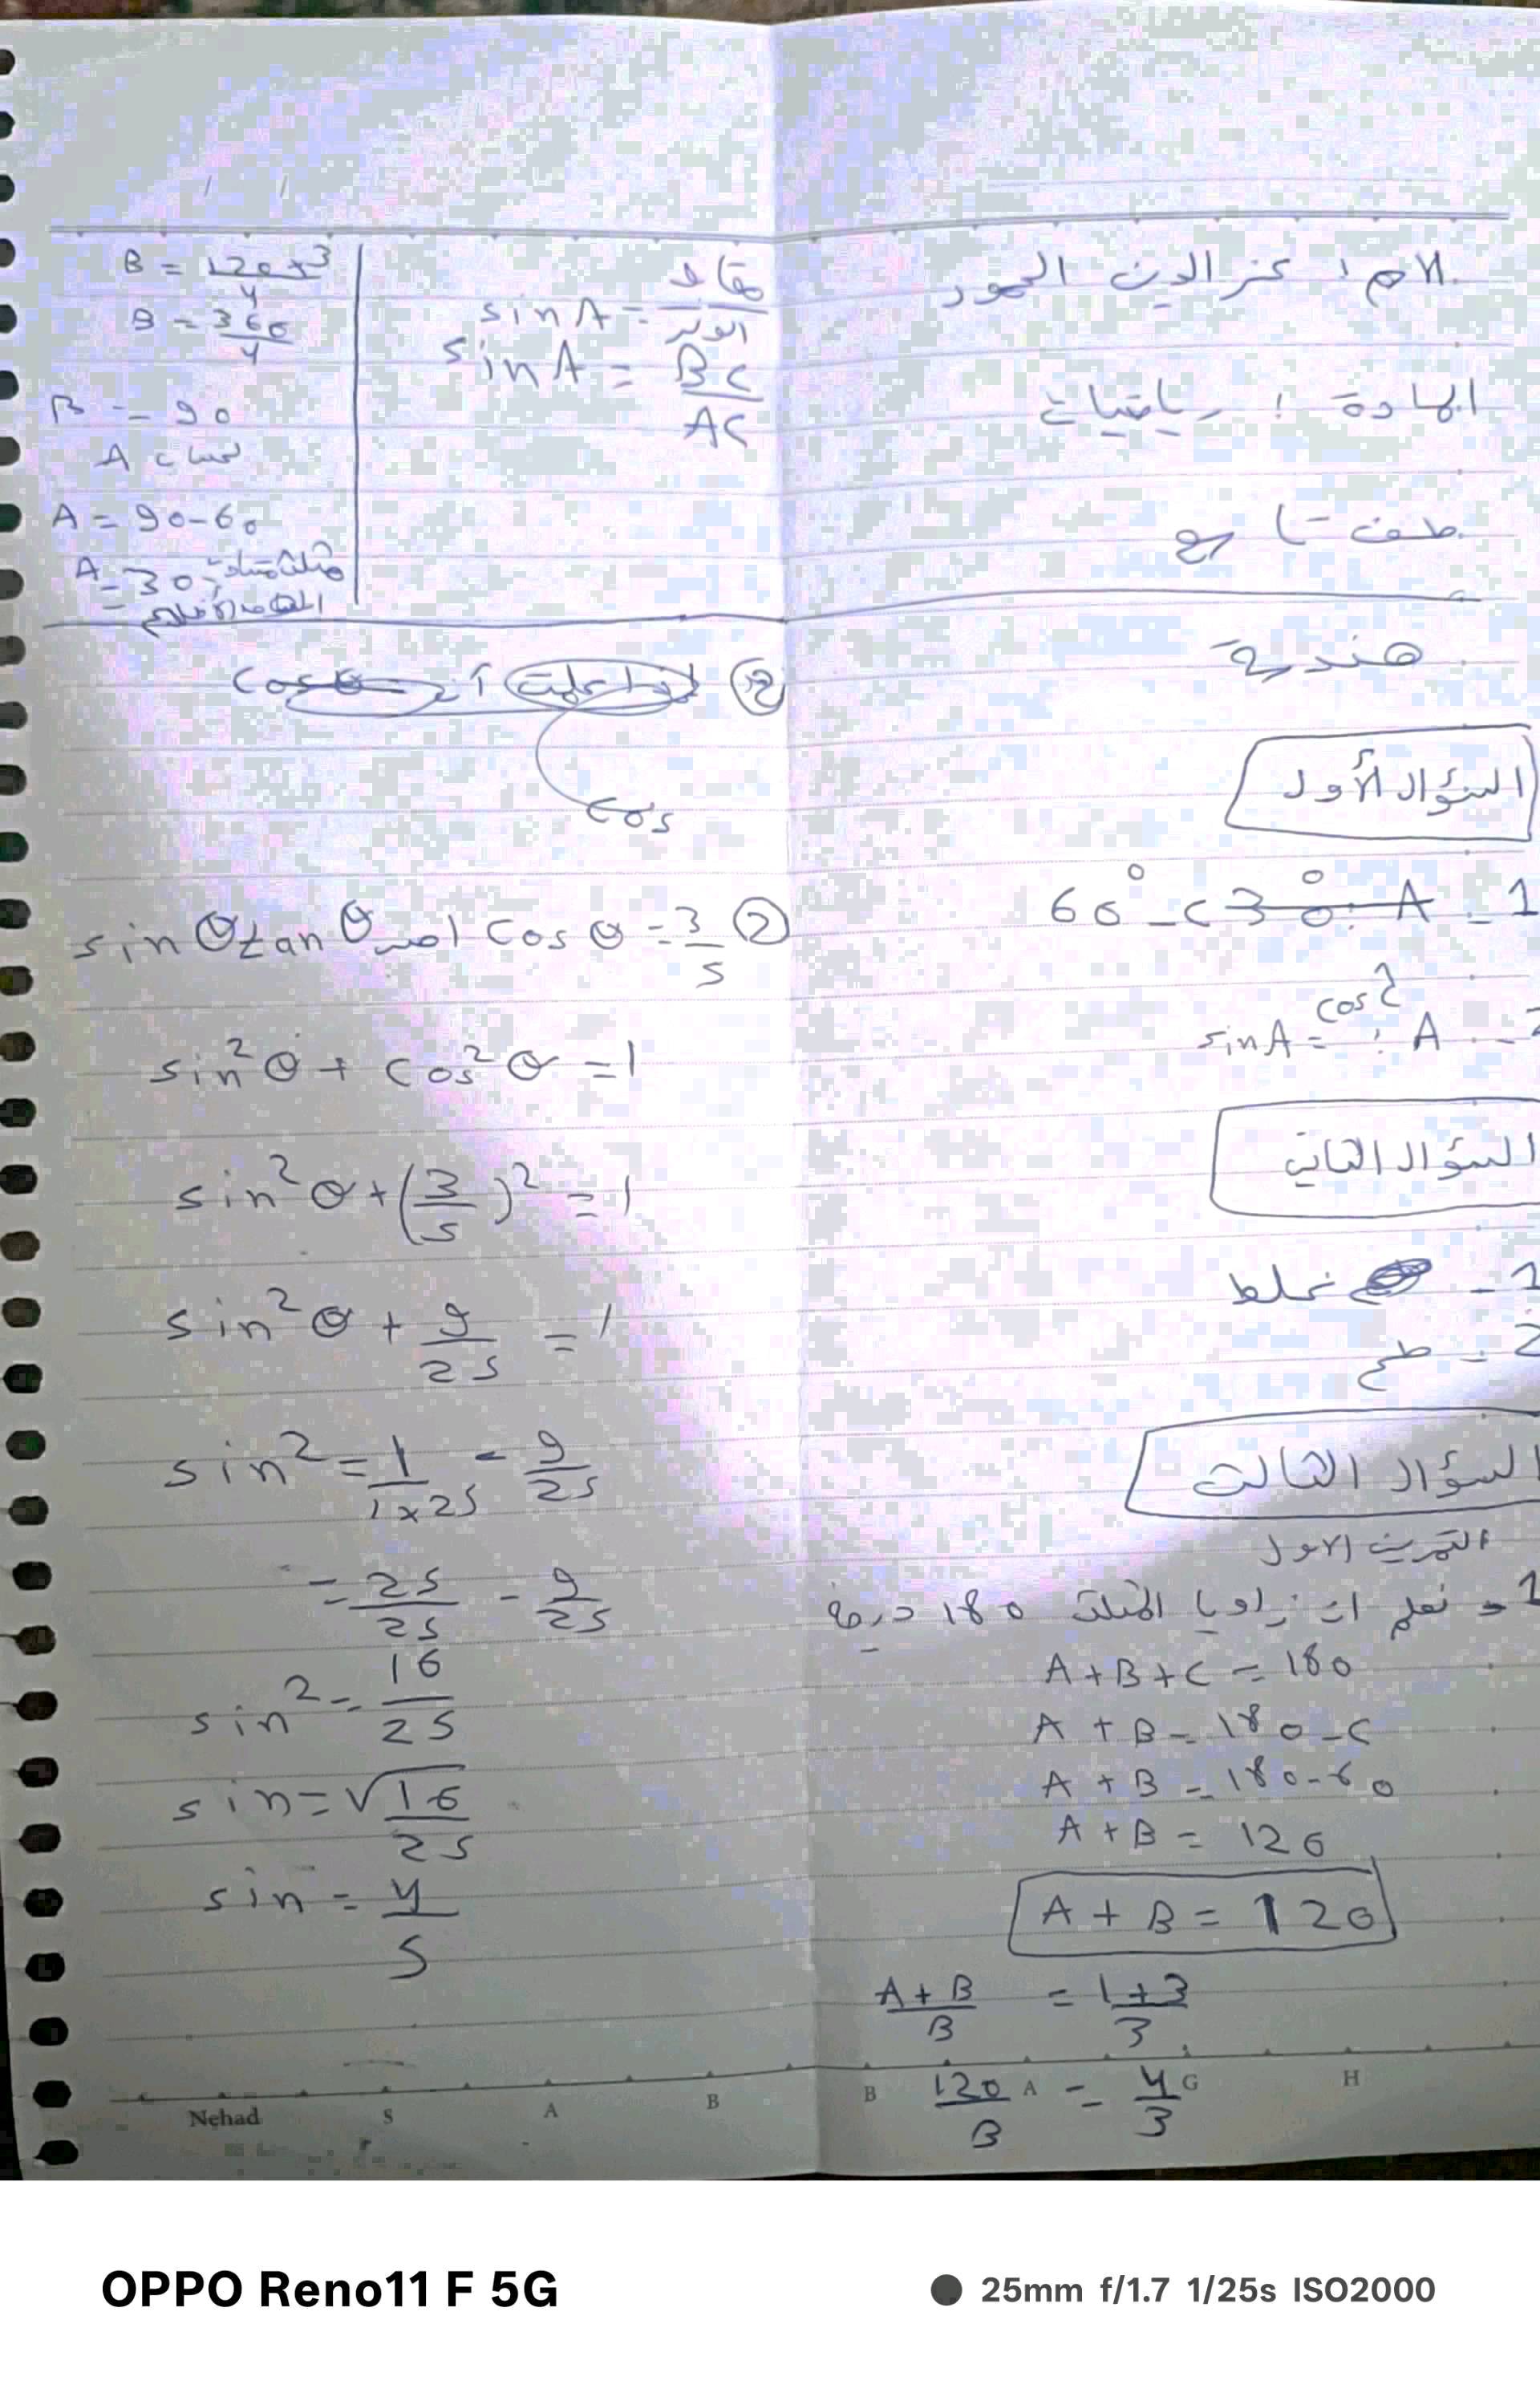 الاسم : عز الدين الحمود
المادة : رياضيات
صف تاسع
هندسة
السؤال الأول
1 - A : 30° - C 60°
2 - A : sin A = cos C
السؤال الثاني
1 - غلط
2 - صح
السؤال الثالث
التمرين الاول
1 - نعلم ان زاويا المثلث 180 درجة
A + B + C = 180
A + B = 180 - C
A + B = 180 - 60
A + B = 120
A + B = 120
A + B / B = 1 + 3 / 3
120 / B = 4 / 3
B = 120 × 3 / 4
B = 360 / 4
B = 90
لحساب A
A = 90 - 60
A = 30
sin A = مقابل / الوتر
sin A = BC / AC
② اذا علمت أن cos θ
cos
② cos θ = 3/5 احسب sin θ tan θ
sin² θ + cos² θ = 1
sin² θ + (3/5)² = 1
sin² θ + 9/25 = 1
sin² = 1 / 1×25 - 9/25
= 25/25 - 9/25
sin² = 16/25
sin = √16/25
sin = 4/5
Nehad S A B B A G H
OPPO Reno11 F 5G
25mm f/1.7 1/25s ISO2000